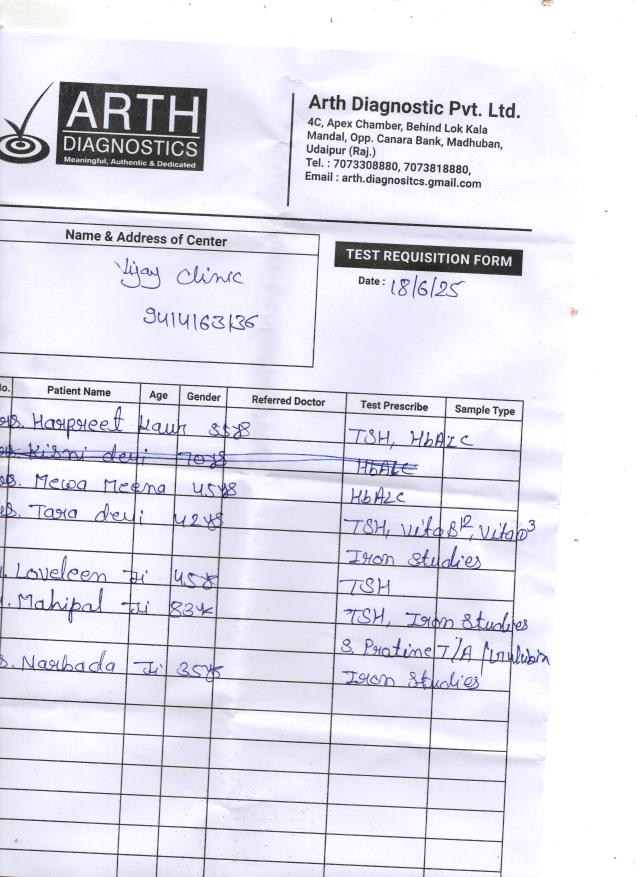 ARTH
DIAGNOSTICS
Meaningful, Authentic & Dedicated
Arth Diagnostic Pvt. Ltd.
4C, Apex Chamber, Behind Lok Kala
Mandal, Opp. Canara Bank, Madhuban,
Udaipur (Raj.)
Tel. : 7073308880, 7073818880,
Email : arth.diagnositcs.gmail.com
Name & Address of Center
Vijay Clinic
9414163136
TEST REQUISITION FORM
Date : 18/6/25
No. Patient Name Age Gender Referred Doctor Test Prescribe Sample Type
Harpreet Kaur 55ys TSH, HbA1C
Kisni devi 70ys HbA1C
Mewa Meena 45ys HbA1C
Tara devi 42ys TSH, Vita B12, Vita D3
Iron Studies
Loveleen Ji 45ys TSH
Mahipal Ji TSH, Iron Studies
S. Protine T/A
Narbada Ji 35ys Iron Studies